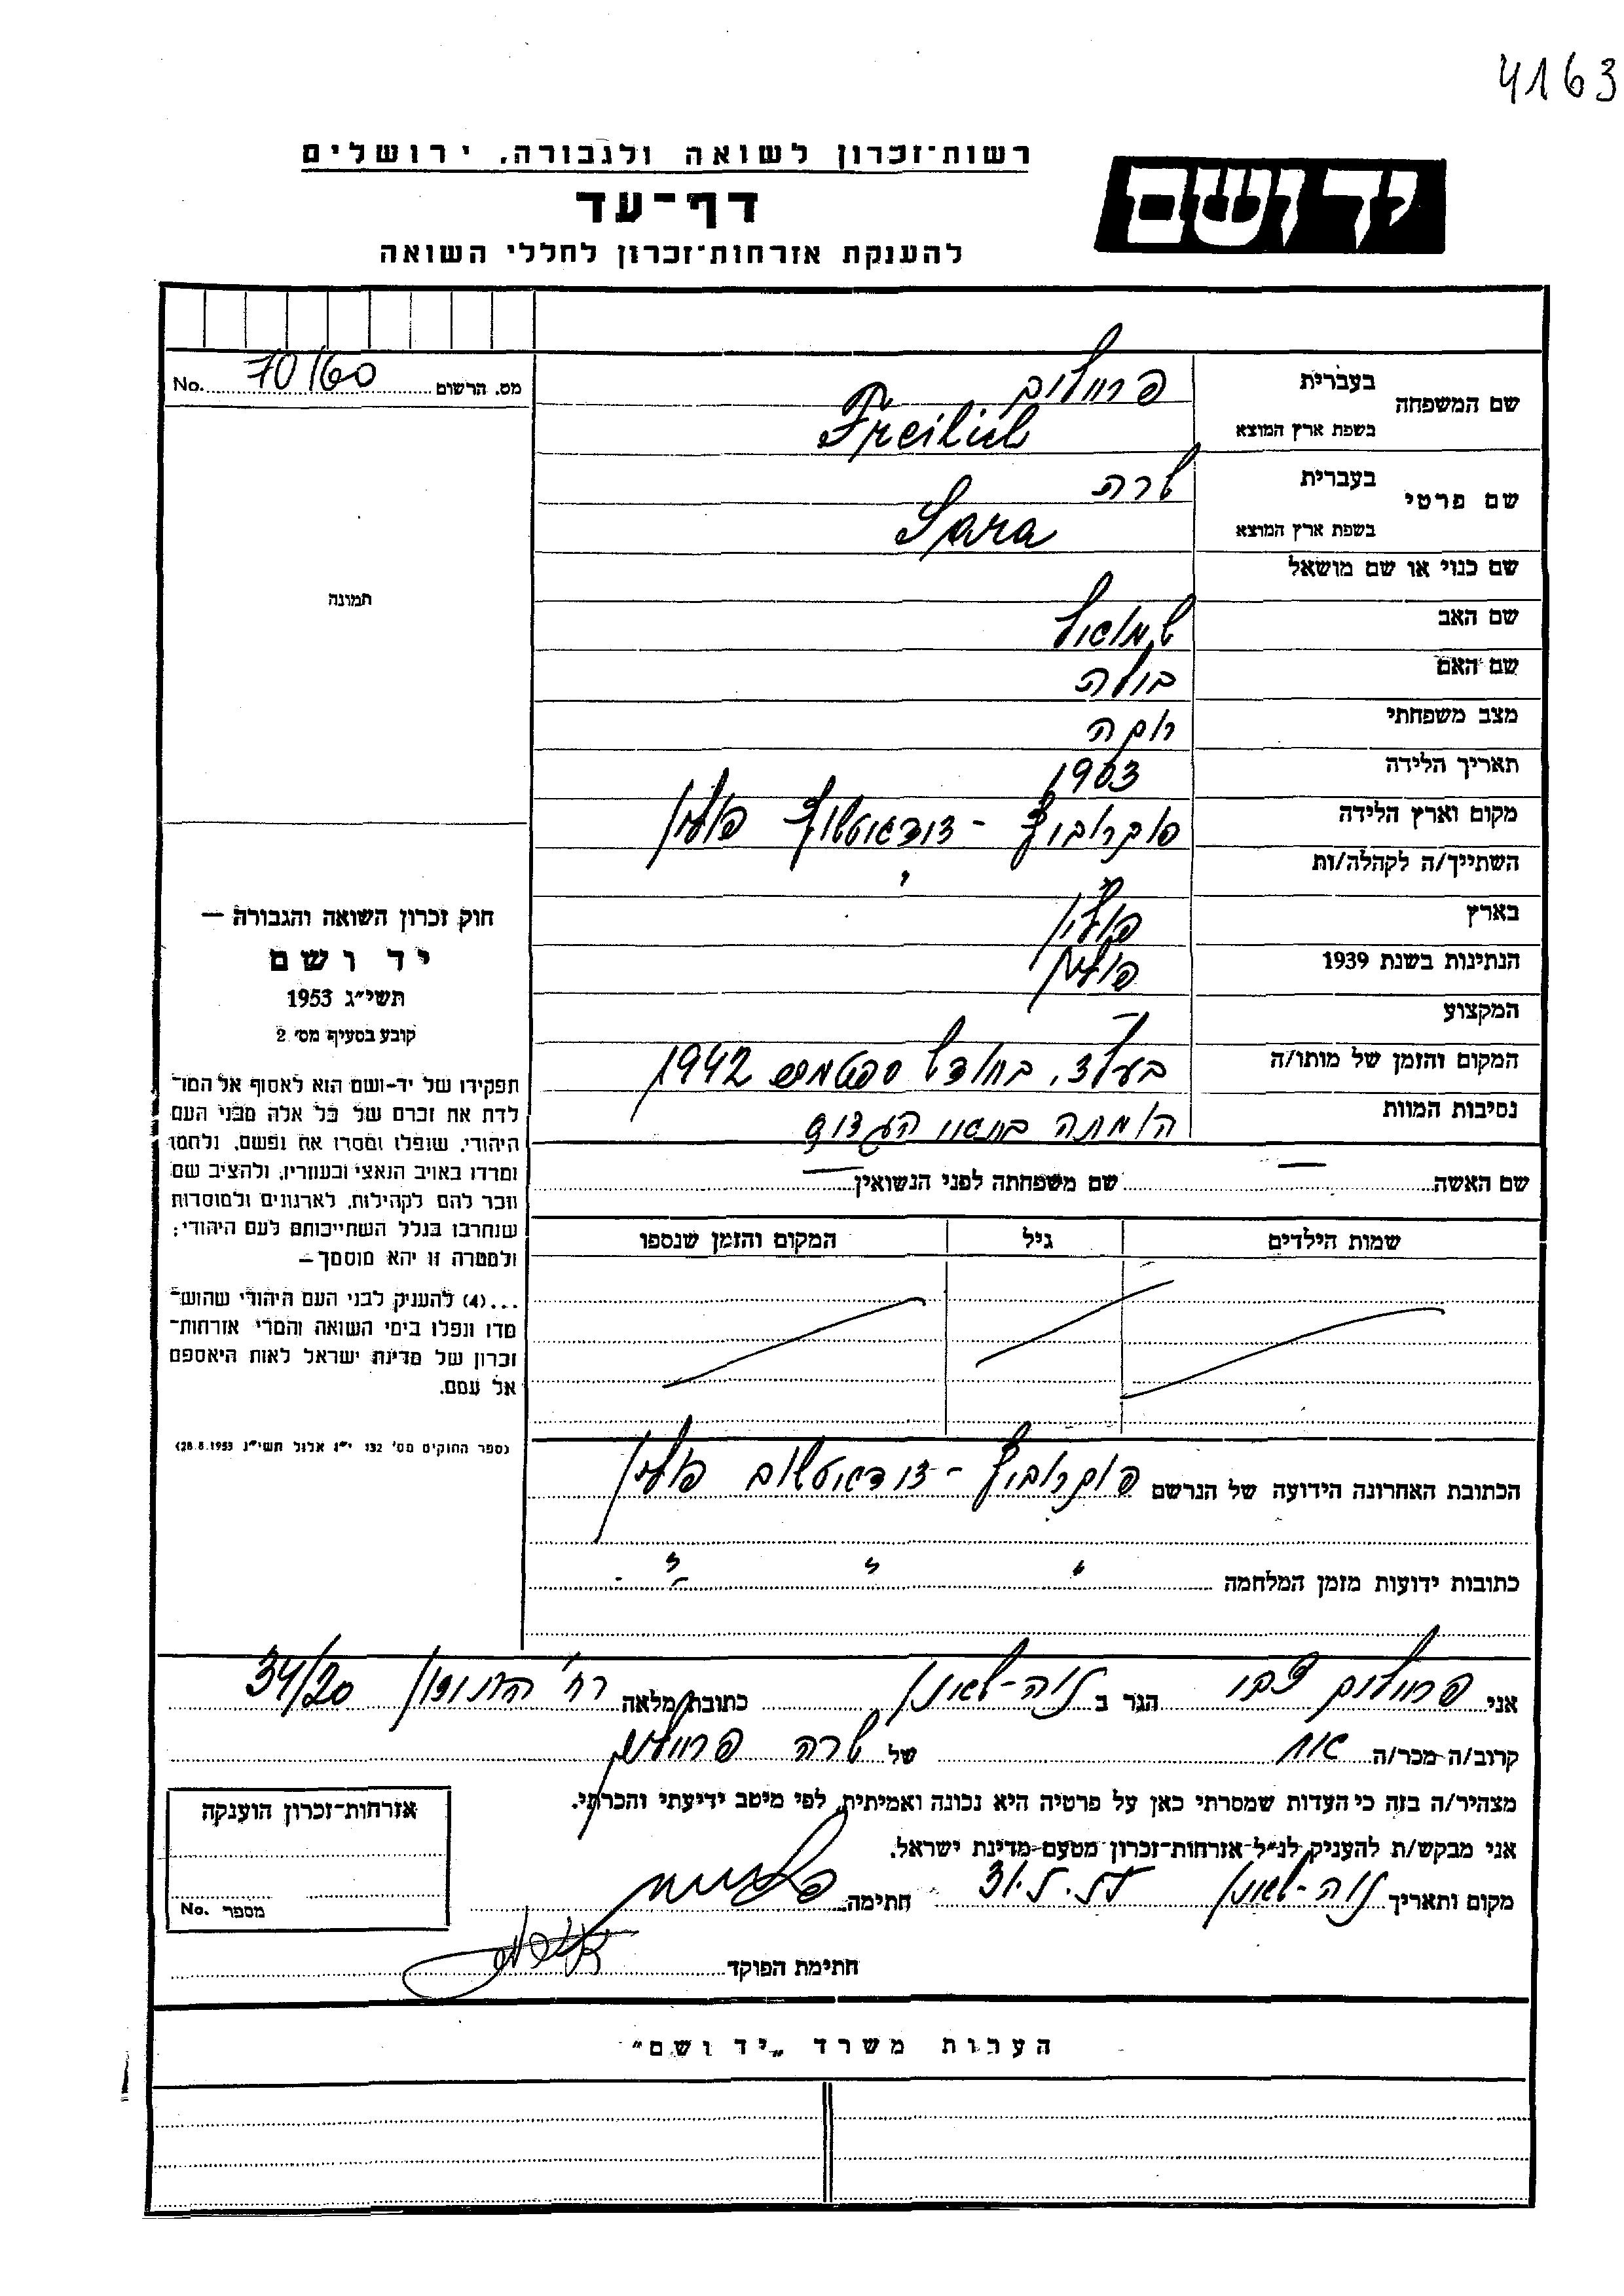 4163
יד ושם
רשות־זכרון לשואה ולגבורה, ירושלים
דף־עד
להענקת אזרחות־זכרון לחללי השואה
מס. הרשום 70/60 No.
שם המשפחה
בעברית
בשפת ארץ המוצא Freilich
שם פרטי
בעברית שרה
בשפת ארץ המוצא Sara
תמונה
שם כנוי או שם מושאל
שם האב שמואל
שם האם בולה
מצב משפחתי רוקה
תאריך הלידה 1903
מקום וארץ הלידה פולין
השתייך/ה לקהלה/ות "
בארץ פולין
הנתינות בשנת 1939 פולין
המקצוע —
המקום והזמן של מותו/ה בעלז, בחודש ספטמבר 1942
נסיבות המוות הומתה
שם האשה — שם משפחתה לפני הנשואין —
שמות הילדים גיל המקום והזמן שנספו
הכתובת האחרונה הידועה של הנרשם פולין
כתובות ידועות מזמן המלחמה " " "
חוק זכרון השואה והגבורה —
יד ושם
תשי״ג 1953
קובע בסעיף מס׳ 2
תפקידו של יד-ושם הוא לאסוף אל המו־
לדת את זכרם של כל אלה מבני העם
היהודי, שנפלו ומסרו את נפשם, נלחמו
ומרדו באויב הנאצי ובעוזריו, ולהציב שם
וזכר להם לקהילות, לארגונים ולמוסדות
שנחרבו בגלל השתייכותם לעם היהודי;
ולמטרה זו יהא מוסמך —
...(4) להעניק לבני העם היהודי שהוש־
מדו ונפלו בימי השואה והמרי אזרחות־
זכרון של מדינת ישראל לאות היאספם
אל עמם.
(ספר החוקים מס׳ 132 י״ז אלול תשי״ג 28.8.1953)
אני פרוילים צבי הגר ב נוה-שאנן כתובת מלאה רח׳ 34/20
קרוב/ה מכר/ה אח של שרה
מצהיר/ה בזה כי העדות שמסרתי כאן על פרטיה היא נכונה ואמיתית, לפי מיטב ידיעתי והכרתי.
אני מבקש/ת להעניק לנ״ל אזרחות־זכרון מטעם מדינת ישראל.
מקום ותאריך נוה-שאנן חתימה
חתימת הפוקד
אזרחות־זכרון הוענקה
מספר No.
הערות משרד „יד ושם״